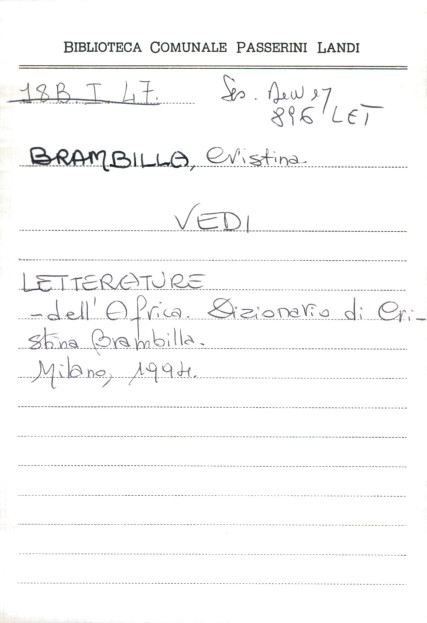 BIBLIOTECA COMUNALE PASSERINI LANDI
18B.I.47. Ses. Dewey
896 LET
BRAMBILLA, Cristina.
VEDI
LETTERATURE
-dell'Africa. Dizionario di Cri-
stina Brambilla.
Milano, 1994.